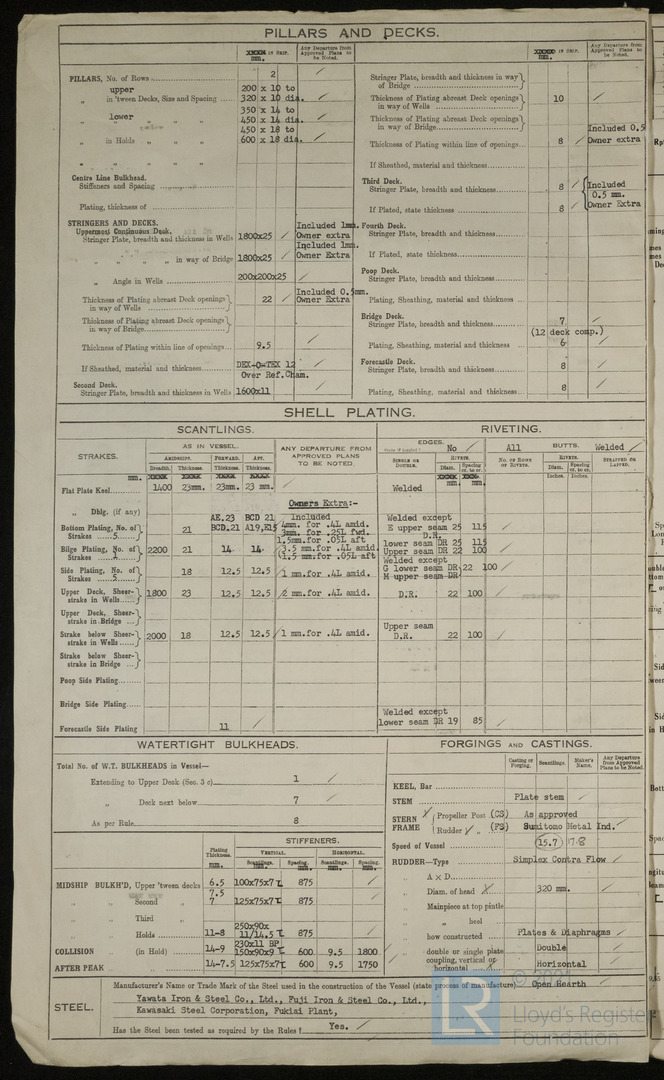 PILLARS AND DECKS.
in Ship. mm.
Any Departure from Approved Plans to be Noted.
PILLARS, No. of Rows 2
upper
„ in 'tween Decks, Size and Spacing 200 x 10 to 320 x 10 dia.
„ lower „ „ 350 x 14 to 450 x 14 dia.
„ in Holds „ „ 450 x 18 to 600 x 18 dia.
„ „ „ „
Centre Line Bulkhead.
Stiffeners and Spacing
Plating, thickness of
STRINGERS AND DECKS.
Uppermost Continuous Deck.
Stringer Plate, breadth and thickness in Wells 1800x25 Included 1mm. Owner extra
„ „ „ „ in way of Bridge 1800x25 Included 1mm. Owner Extra
„ Angle in Wells 200x200x25
Thickness of Plating abreast Deck openings in way of Wells 22 Included 0.5mm. Owner Extra
Thickness of Plating abreast Deck openings in way of Bridge
Thickness of Plating within line of openings 9.5
If Sheathed, material and thickness DEX-O-TEX 12 Over Ref.Cham.
Second Deck.
Stringer Plate, breadth and thickness in Wells 1600x11
in Ship. mm.
Any Departure from Approved Plans to be Noted.
Stringer Plate, breadth and thickness in way of Bridge
Thickness of Plating abreast Deck openings in way of Wells 10
Thickness of Plating abreast Deck openings in way of Bridge
Thickness of Plating within line of openings 8 Included 0.5 Owner extra
If Sheathed, material and thickness
Third Deck.
Stringer Plate, breadth and thickness 8 Included 0.5 mm. Owner Extra
If Plated, state thickness 8
Fourth Deck.
Stringer Plate, breadth and thickness
If Plated, state thickness
Poop Deck.
Stringer Plate, breadth and thickness
Plating, Sheathing, material and thickness
Bridge Deck.
Stringer Plate, breadth and thickness 7
(12 deck comp.)
Plating, Sheathing, material and thickness 6
Forecastle Deck.
Stringer Plate, breadth and thickness 8
Plating, Sheathing, material and thickness 8
SHELL PLATING.
SCANTLINGS.
RIVETING.
STRAKES.
AS IN VESSEL.
AMIDSHIPS. FORWARD. AFT.
Breadth. Thickness. Thickness. Thickness.
ANY DEPARTURE FROM APPROVED PLANS TO BE NOTED.
EDGES. No
SINGLE OR DOUBLE.
RIVETS.
Diam. Spacing cr. to cr.
mm. mm.
All
NO. OF ROWS OF RIVETS.
BUTTS. Welded
RIVETS.
Diam. Spacing cr. to cr.
Inches. Inches.
STRAPPED OR LAPPED.
mm.
Flat Plate Keel 1400 23mm. 23mm. 23 mm. Welded
„ Dblg. (if any) Owners Extra:-
AE.23 BCD 21 Included
Bottom Plating, No. of Strakes 5 21 BCD.21 A19,E15 4mm. for .4L amid. 3mm. for .25L fwd. 1.5mm.for .05L aft
Welded except E upper seam 25 115 D.R.
Bilge Plating, No. of Strakes 1 2200 21 14 14 3.5 mm.for .4L amid. 1.5 mm.for .05L aft
lower seam DR 25 115
Upper seam DR 22 100
Side Plating, No. of Strakes 5 18 12.5 12.5 1 mm.for .4L amid.
Welded except
G lower seam DR 22 100
M upper seam DR
Upper Deck, Sheerstrake in Wells 1800 23 12.5 12.5 2 mm.for .4L amid. D.R. 22 100
Upper Deck, Sheerstrake in Bridge
Strake below Sheerstrake in Wells 2000 18 12.5 12.5 1 mm.for .4L amid. Upper seam D.R. 22 100
Strake below Sheerstrake in Bridge
Poop Side Plating
Bridge Side Plating
Forecastle Side Plating 11 Welded except lower seam DR 19 85
WATERTIGHT BULKHEADS.
Total No. of W.T. BULKHEADS in Vessel—
Extending to Upper Deck (Sec. 3 c) 1
„ Deck next below 7
As per Rule 8
Plating Thickness. mm.
STIFFENERS.
VERTICAL. HORIZONTAL.
Scantlings. Spacing. Scantlings. Spacing.
mm. mm. mm. mm.
MIDSHIP BULKH'D, Upper 'tween decks 6.5 100x75x7 875
„ „ Second „ 7.5 7 125x75x7 875
„ „ Third „
„ „ Holds 11-8 250x90x 11/14.5 875
COLLISION „ (in Hold) 14-9 230x11 BP 150x90x9 600 9.5 1800
AFTER PEAK „ „ 14-7.5 125x75x7 600 9.5 1750
FORGINGS AND CASTINGS.
Casting or Forging. Scantlings. Maker's Name. Any Departure from Approved Plans to be Noted.
KEEL, Bar
STEM Plate stem
STERN FRAME Propeller Post (CS) As approved
Rudder „ (FS) Sumitomo Metal Ind.
Speed of Vessel 15.7 17.8
RUDDER—Type Simplex Contra Flow
„ A x D
„ Diam. of head 320 mm.
„ Mainpiece at top pintle
„ „ heel
„ how constructed Plates & Diaphragms
„ double or single plate Double
„ coupling, vertical or horizontal Horizontal
STEEL.
Manufacturer's Name or Trade Mark of the Steel used in the construction of the Vessel (state process of manufacture) Open Hearth
Yawata Iron & Steel Co., Ltd., Fuji Iron & Steel Co., Ltd.,
Kawasaki Steel Corporation, Fukiai Plant,
Has the Steel been tested as required by the Rules? Yes.
LR
Lloyd's Register
Foundation